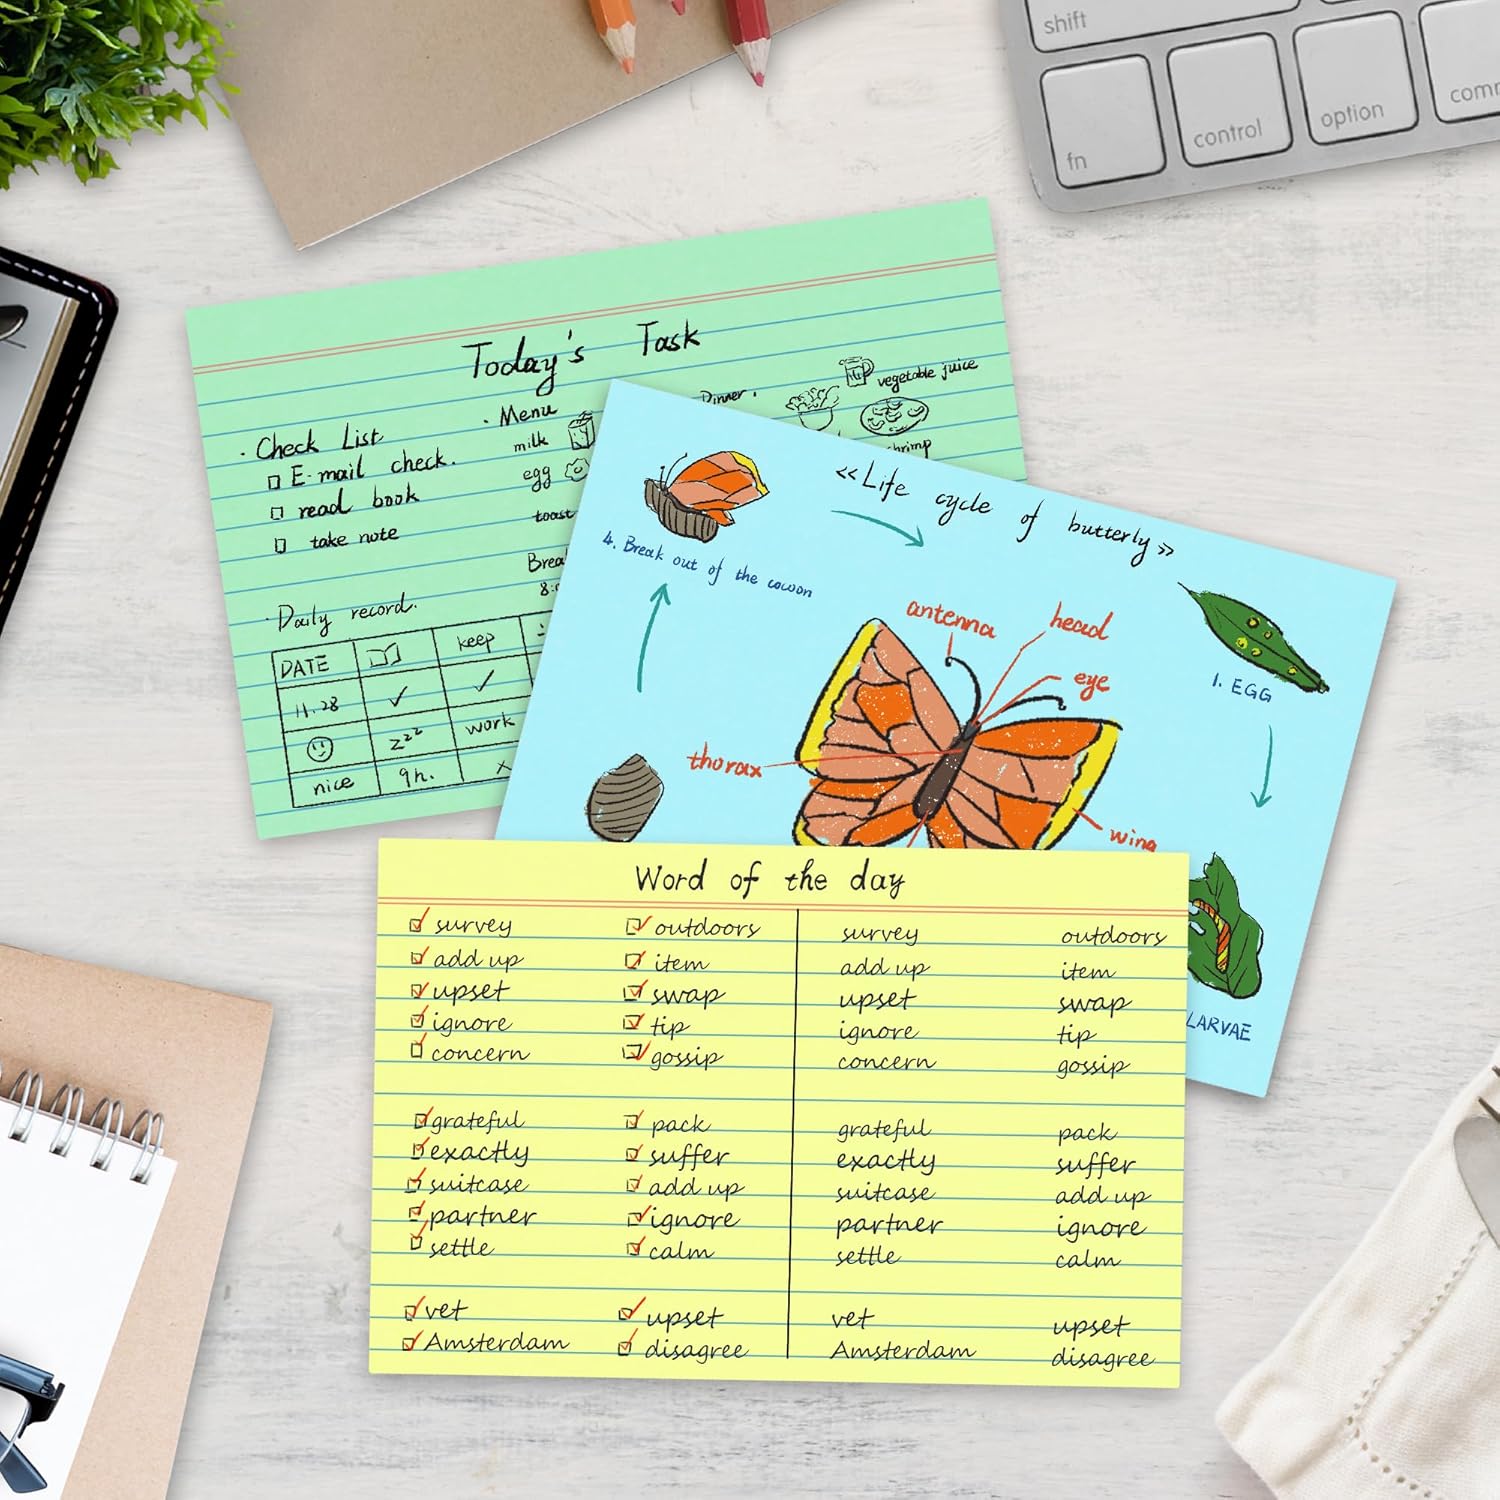 shift
fn
control
option
Today's Task
· Check List
E-mail check.
read book
take note
· Menu
milk
egg
toast
Dinner.
vegetable juice
· Daily record.
DATE keep
11.28 ✓ ✓
zzz work
nice 9h. x
<<Life cycle of butterly>>
4. Break out of the cocoon
1. EGG
LARVAE
antenna
head
eye
thorax
wing
Word of the day
survey outdoors survey outdoors
add up item add up item
upset swap upset swap
ignore tip ignore tip
concern gossip concern gossip
grateful pack grateful pack
exactly suffer exactly suffer
suitcase add up suitcase add up
partner ignore partner ignore
settle calm settle calm
vet upset vet upset
Amsterdam disagree Amsterdam disagree